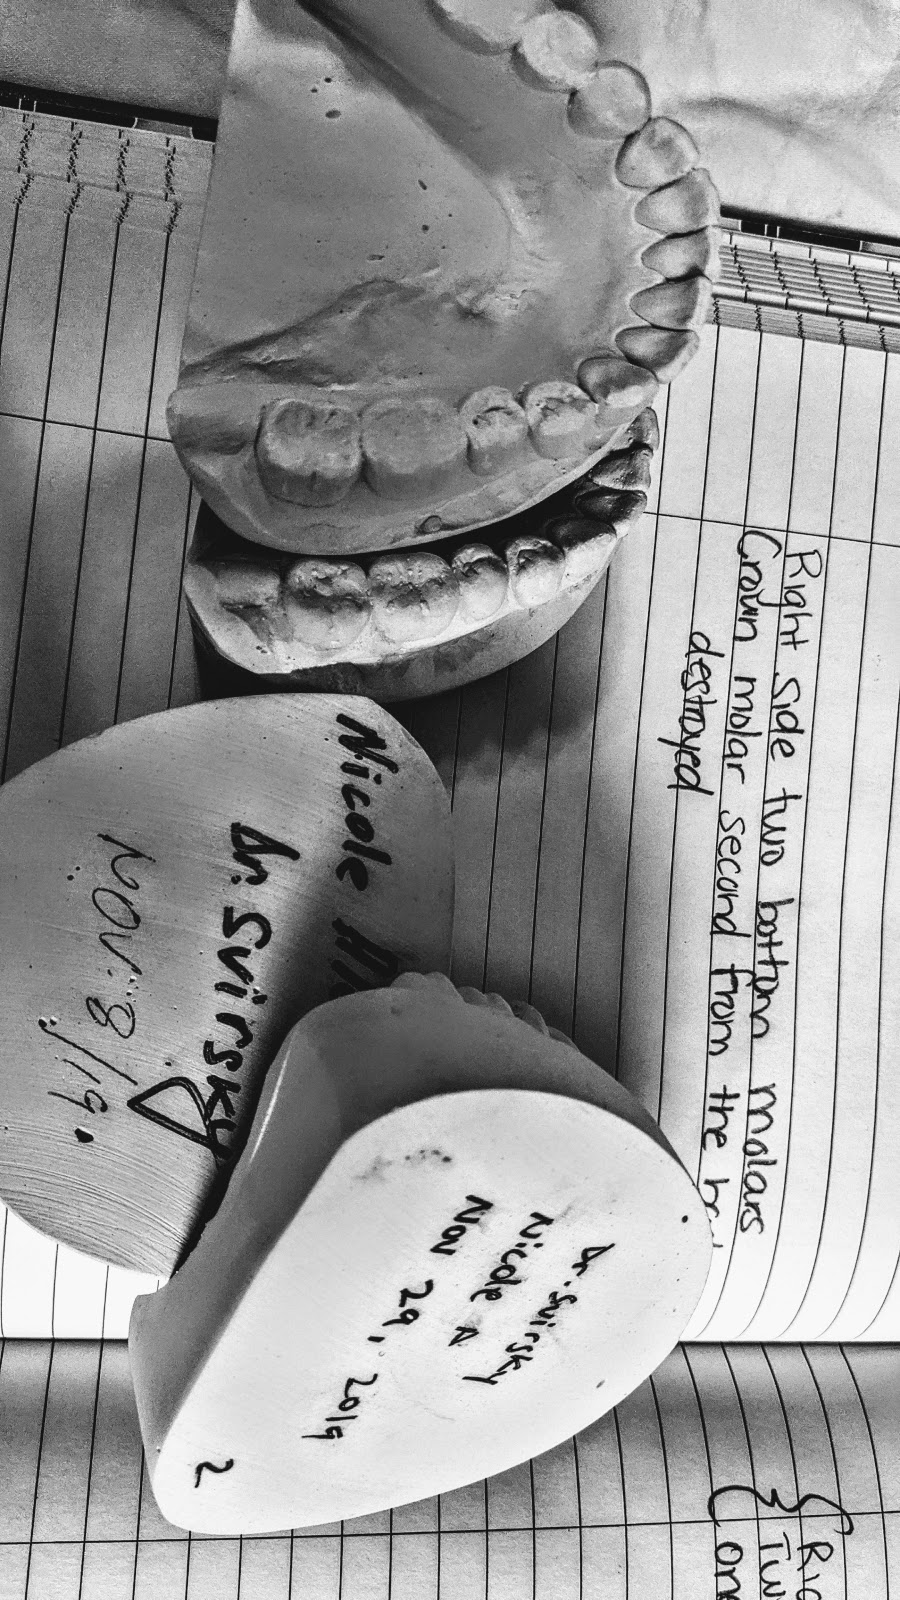 Right side two bottom molars
Crown molar second from the
destroyed
Nicole
Dr. Svirsky
Nov. 8/19.
Dr. Svirsky
Nicole A
Nov 29, 2019
2
{